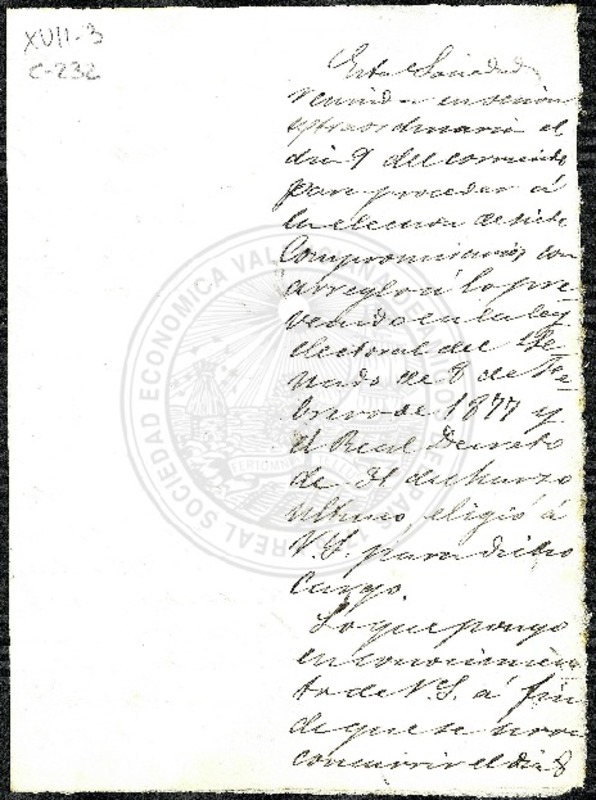 XVII-3
C-232
Esta Sociedad
reunida en sesion
extraordinaria el
dia 9 del corriente
para proceder á
la eleccion de siete
Compromisarios con
arreglo á lo pre-
venido en la ley
electoral del Se-
nado de 8 de Fe-
brero de 1877 y
el Real Decreto
de 31 de Marzo
ultimo, eligió á
V.S. para dicho
Cargo.
Lo que pongo
en conocimien-
to de V.S. á fin
de que se sirva
concurrir el dia 8
REAL SOCIEDAD ECONOMICA VALENCIANA DE AMIGOS DEL PAIS